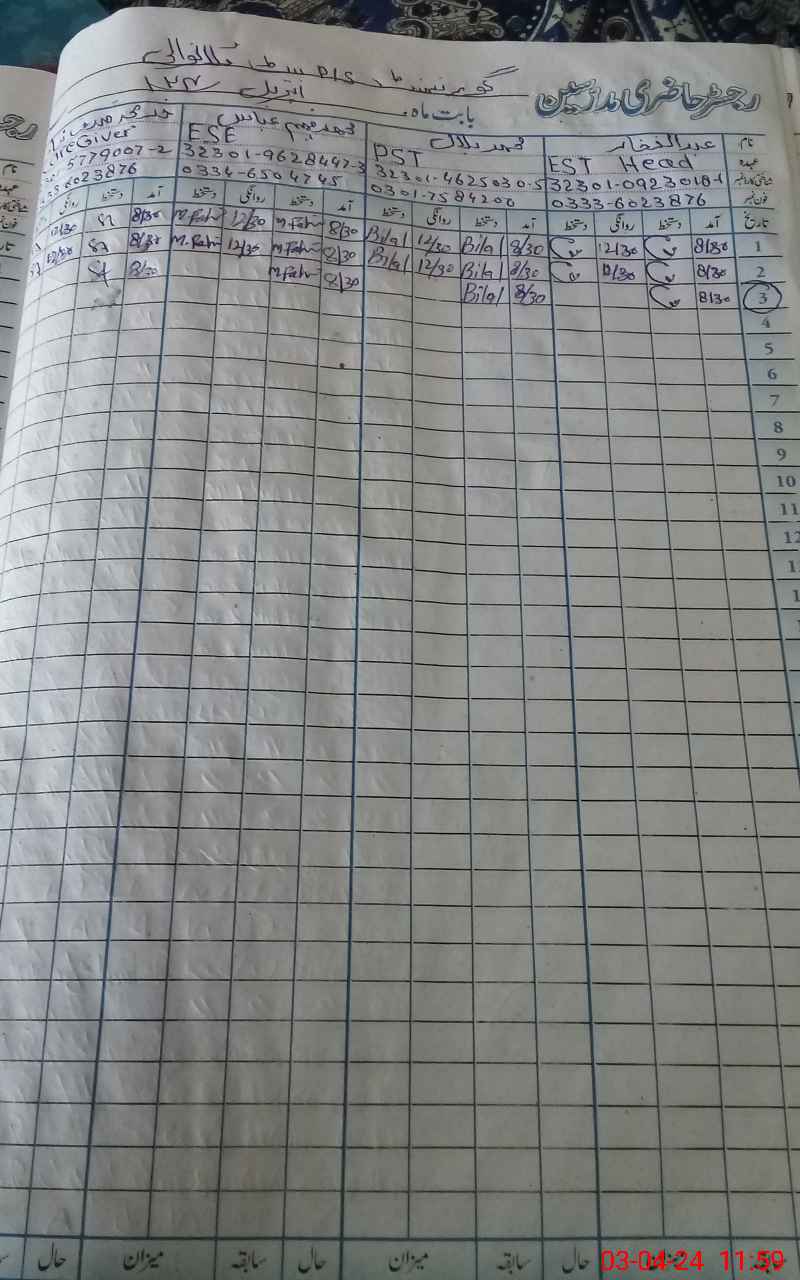 رجسٹر حاضری مدرسین
گورنمنٹ P/S بستی
بابت ماہ اپریل
نام عبدالغفار محمد بلال محمد فہیم عباس
عہدہ EST Head PST ESE Giver
شناختی کارڈ نمبر 32301-0923018-1 32301-4625030-5 32301-9628447-3 5779007-2
فون نمبر 0333-6023876 0301-7584200 0334-6504745 6023876
تاریخ آمد دستخط روانگی دستخط آمد دستخط روانگی دستخط آمد دستخط روانگی دستخط آمد دستخط روانگی
1 8/30 12/30 8/30 Bilal 12/30 Bilal 8/30 M.Fahi 12/30 M.Fahi 8/30 12/30
2 8/30 12/30 8/30 Bilal 12/30 Bilal 8/30 M.Fahi 12/30 M.Fahi 8/30 12/30
3 8/30 8/30 Bilal 8/30 M.Fahi 8/30
4
5
6
7
8
9
10
11
حال سابقہ میزان حال سابقہ میزان حال
03-04-24 11:59